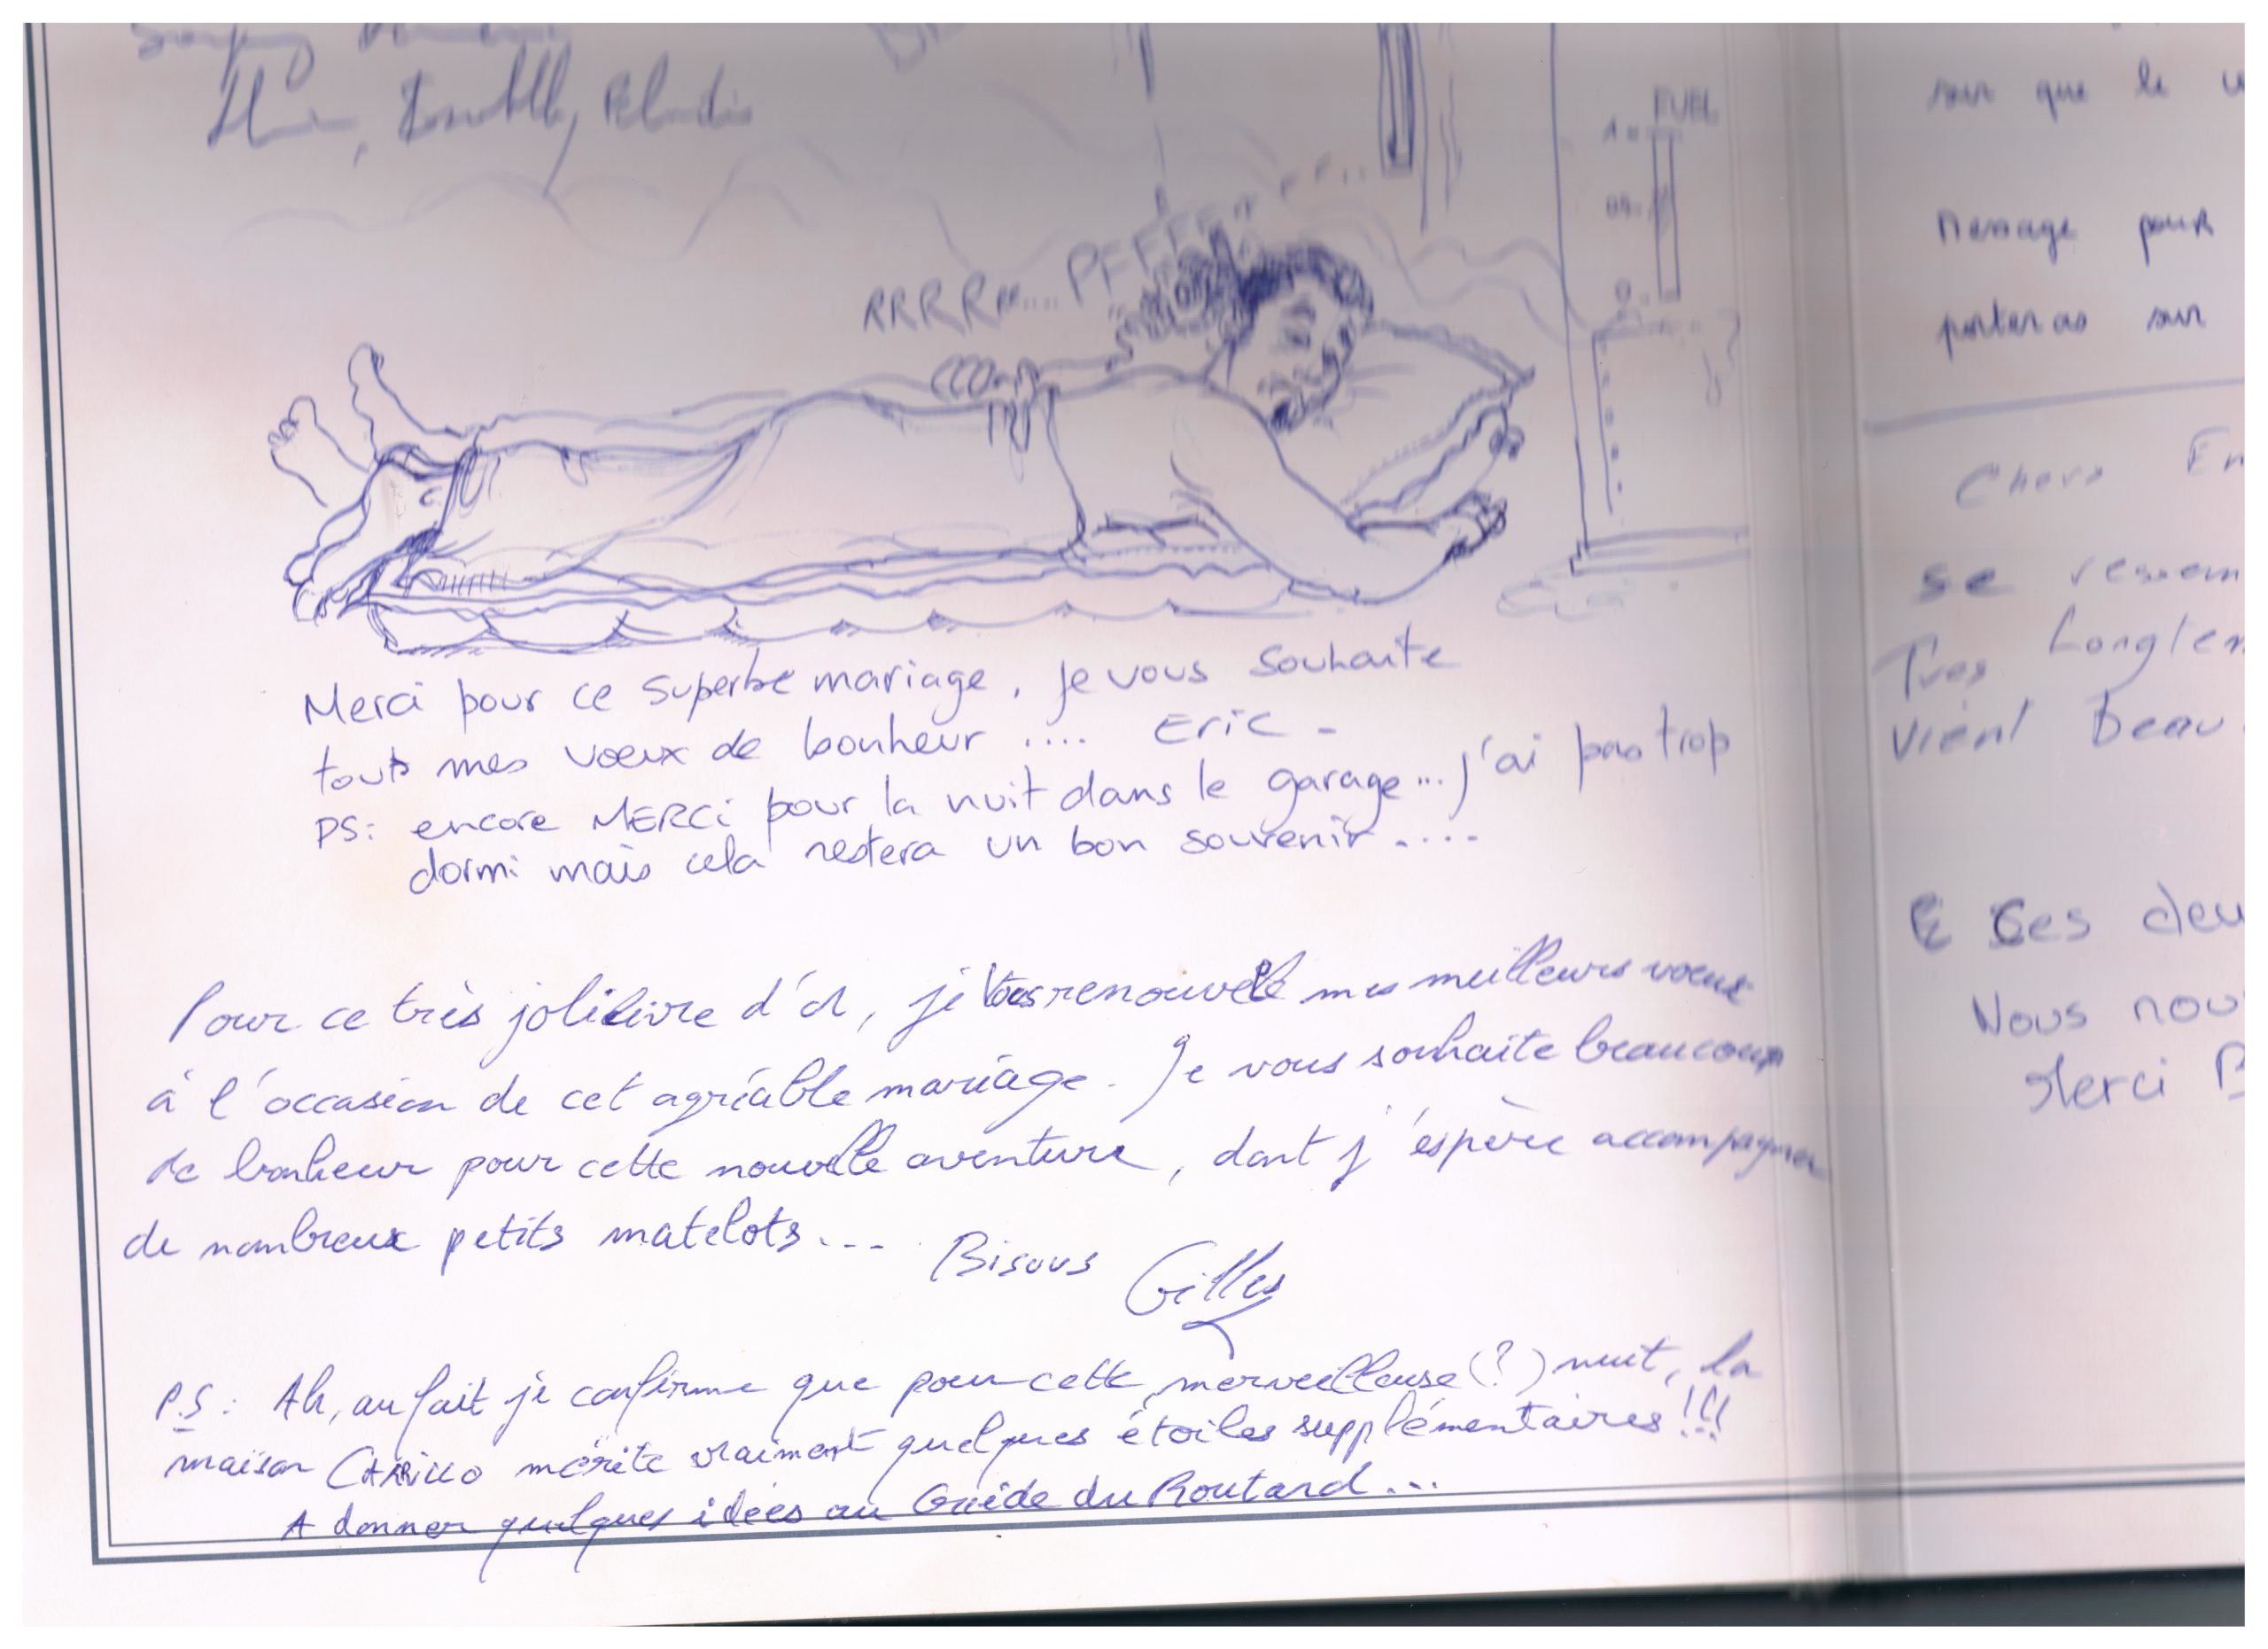 FUEL
1
0
RRRRrr.... PFFFFF
Merci pour ce superbe mariage, je vous souhaite
touts mes voeux de bonheur .... Eric -
PS: encore MERCi pour la nuit dans le garage... j'ai pas trop
dormi mais cela restera un bon souvenir ....
Pour ce très joli livre d'or, je vous renouvelle mes meilleurs voeux
à l'occasion de cet agréable mariage. Je vous souhaite beaucoup
de bonheur pour cette nouvelle aventure, dont j'espère accompagner
de nombreux petits matelots...
Bisous Gilles
P.S: Ah, au fait je confirme que pour cette merveilleuse (?) nuit, la
maison CARILLO mérite vraiment quelques étoiles supplémentaires !!!
A donner quelques idées au Guide du Routard...
sur que le
Message pour
porteras sur
Chers
se
Très Longtem
Vient Beau
Ces deu
Nous nou
Merci B